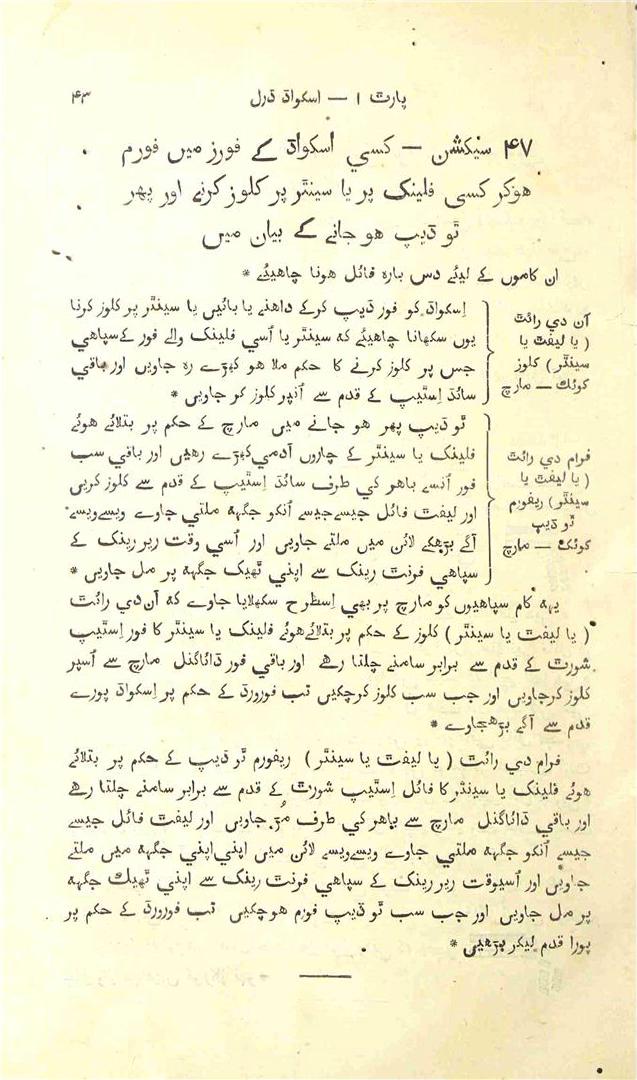 پارٹ ۱ — اسکواڈ ڈرل ۴۳
۴۷ سیکشن — کسي اسکواڈ کے فورز میں فورم
هوکر کسی فلینک پر یا سینٹر پر کلوز کرنے اور پھر
ٹو ڈیپ هو جانے کے بیان میں
ان کاموں کے لیئے دس بارہ فائل هونا چاهیئے *
آن دي رائٹ
( یا لیفٹ یا
سینٹر ) کلوز
کوئک — مارچ
اِسکواڈ کو فور ڈیپ کرکے داهنے یا بائیں یا سینٹر پر کلوز کرنا
یوں سکھانا چاهیئے که سینٹر یا اُسي فلینک والے فور کے سپاهي
جس پر کلوز کرنے کا حکم ملا هو کھڑے رہ جاویں اور باقي
سائڈ اِسٹیپ کے قدم سے اُنپر کلوز کر جاویں *
فرام دي رائٹ
( یا لیفٹ یا
سینٹر ) ریفورم
ٹو ڈیپ
کوئک — مارچ
ٹو ڈیپ پھر هو جانے میں مارچ کے حکم پر بتلائے هوئے
فلینک یا سینٹر کے چاروں آدمي کھڑے رهیں اور باقي سب
فور اُنسے باهر کي طرف سائڈ اِسٹیپ کے قدم سے کلوز کریں
اور لیفٹ فائل جیسے جیسے اُنکو جگہه ملتي جاوے ویسے ویسے
آگے بڑھکے لائن میں ملتے جاویں اور اُسي وقت ریر رینک کے
سپاهي فرنٹ رینک سے اپني ٹھیک جگہه پر مل جاویں *
یہه کام سپاهیوں کو مارچ پر بھي اِسطرح سکھلایا جاوے که آن دي رائٹ
( یا لیفٹ یا سینٹر ) کلوز کے حکم پر بتلائے هوئے فلینک یا سینٹر کا فور اِسٹیپ
شورٹ کے قدم سے برابر سامنے چلتا رهے اور باقي فور ڈائگنل مارچ سے اُسپر
کلوز کرجاویں اور جب سب کلوز کرچکیں تب فورورڈ کے حکم پر اِسکواڈ پورے
قدم سے آگے بڑھجاوے *
فرام دي رائٹ ( یا لیفٹ یا سینٹر ) ریفورم ٹو ڈیپ کے حکم پر بتلائے
هوئے فلینک یا سینٹر کا فائل اِسٹیپ شورٹ کے قدم سے برابر سامنے چلتا رهے
اور باقي ڈائگنل مارچ سے باهر کي طرف مُڑ جاویں اور لیفٹ فائل جیسے
جیسے اُنکو جگہه ملتي جاوے ویسے ویسے لائن میں اپني اپني جگہه میں ملتے
جاویں اور اُسیوقت ریر رینک کے سپاهي فرنٹ رینک سے اپني ٹھیک جگہه
پر مل جاویں اور جب سب ٹو ڈیپ فورم هوچکیں تب فورورڈ کے حکم پر
پورا قدم لیکر بڑھیں *